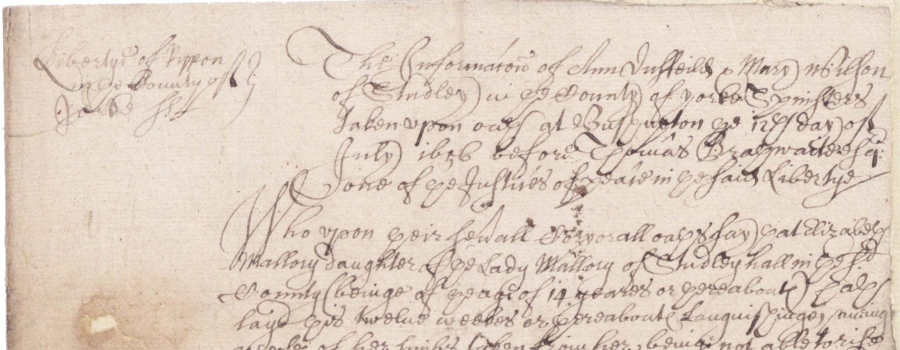 Libertye of Rippon
in ye County of
Yorke ss
The Informatons of Ann Duffeild & Mary Wilson
of Studley in ye County of yorke Spinsters
Taken upon oath at ye 12th day of
July 1656 before Thomas Braythwaite Esq:
one of ye Justices of peace in ye said Libertye
Who upon their seuerall oaths say that Elizabeth
Mallory daughter of ye Lady Mallory of Studley hall in ye sd
County (beinge of ye age of 14 yeares or thereabouts) hath
layd this twelve weekes or thereabouts Languishinge
of her limbs taken from her, beinge not able to rise